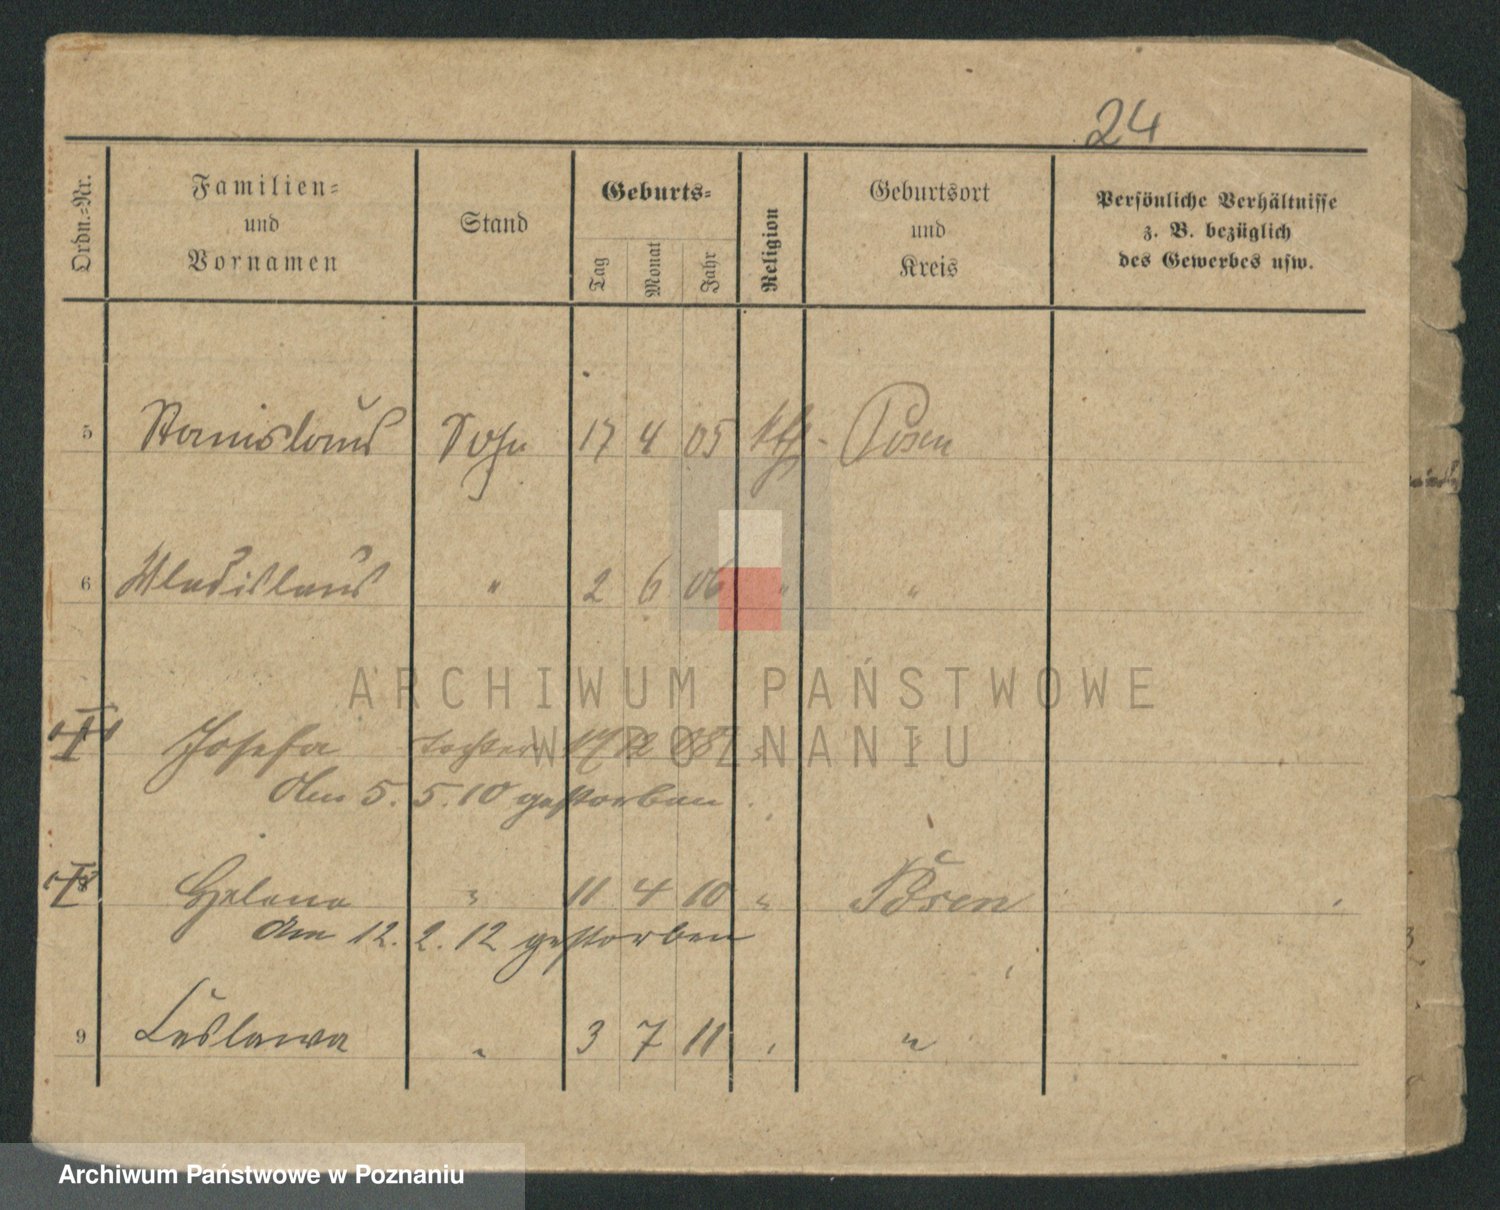 24
Ordn.=Nr.
Familien= und Vornamen
Stand
Geburts=
Tag
Monat
Jahr
Religion
Geburtsort und Kreis
Persönliche Verhältnisse z. B. bezüglich des Gewerbes usw.
5 Stanislaus Sohn 17 4 05 kth. Posen
6 Wladislaus " 2 6 06 " "
Josefa Tochter 17 12 08 "
Am 5. 5. 10 gestorben
Helena " 11 4 10 " Posen
Am 12. 2. 12 gestorben
9 Leslawa " 3 7 11 " "
ARCHIWUM PAŃSTWOWE
W POZNANIU
Archiwum Państwowe w Poznaniu